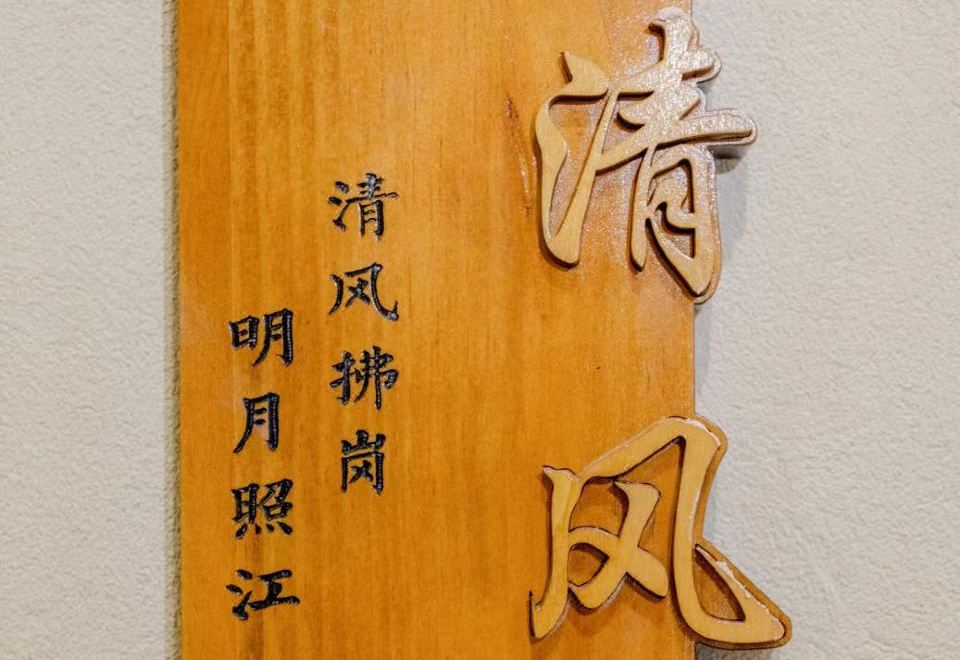 清风
清风拂岗
明月照江